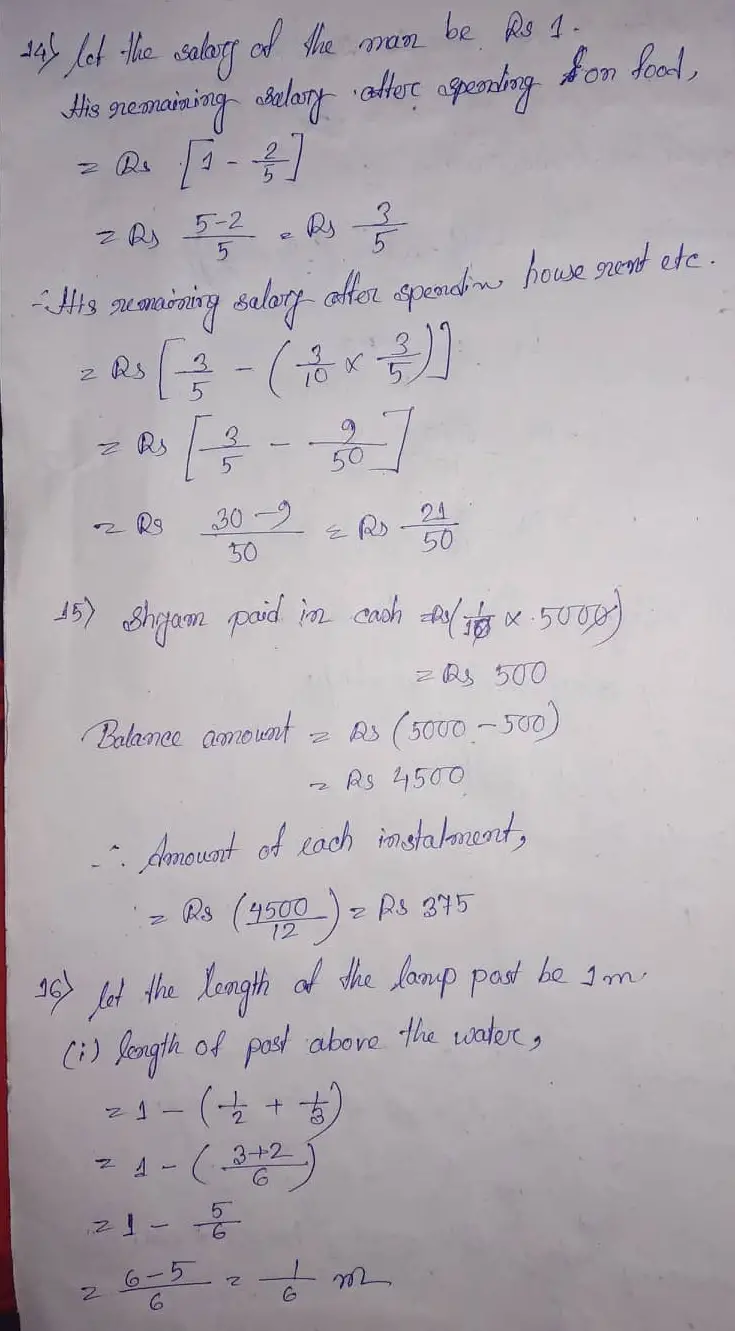 14) let the salary of the man be Rs 1.
His remaining salary after spending on food,
= Rs [1 - 2/5]
= Rs 5-2/5 = Rs 3/5
∴ His remaining salary after spendin house rent etc.
= Rs [3/5 - (3/10 × 3/5)]
= Rs [3/5 - 9/50]
= Rs 30-9/50 = Rs 21/50
15) Shyam paid in cash = Rs (1/10 × 5000)
= Rs 500
Balance amount = Rs (5000 - 500)
= Rs 4500
∴ Amount of each instalment,
= Rs (4500/12) = Rs 375
16) let the length of the lamp post be 1m
(i) length of post above the water,
= 1 - (1/2 + 1/3)
= 1 - (3+2/6)
= 1 - 5/6
= 6-5/6 = 1/6 m